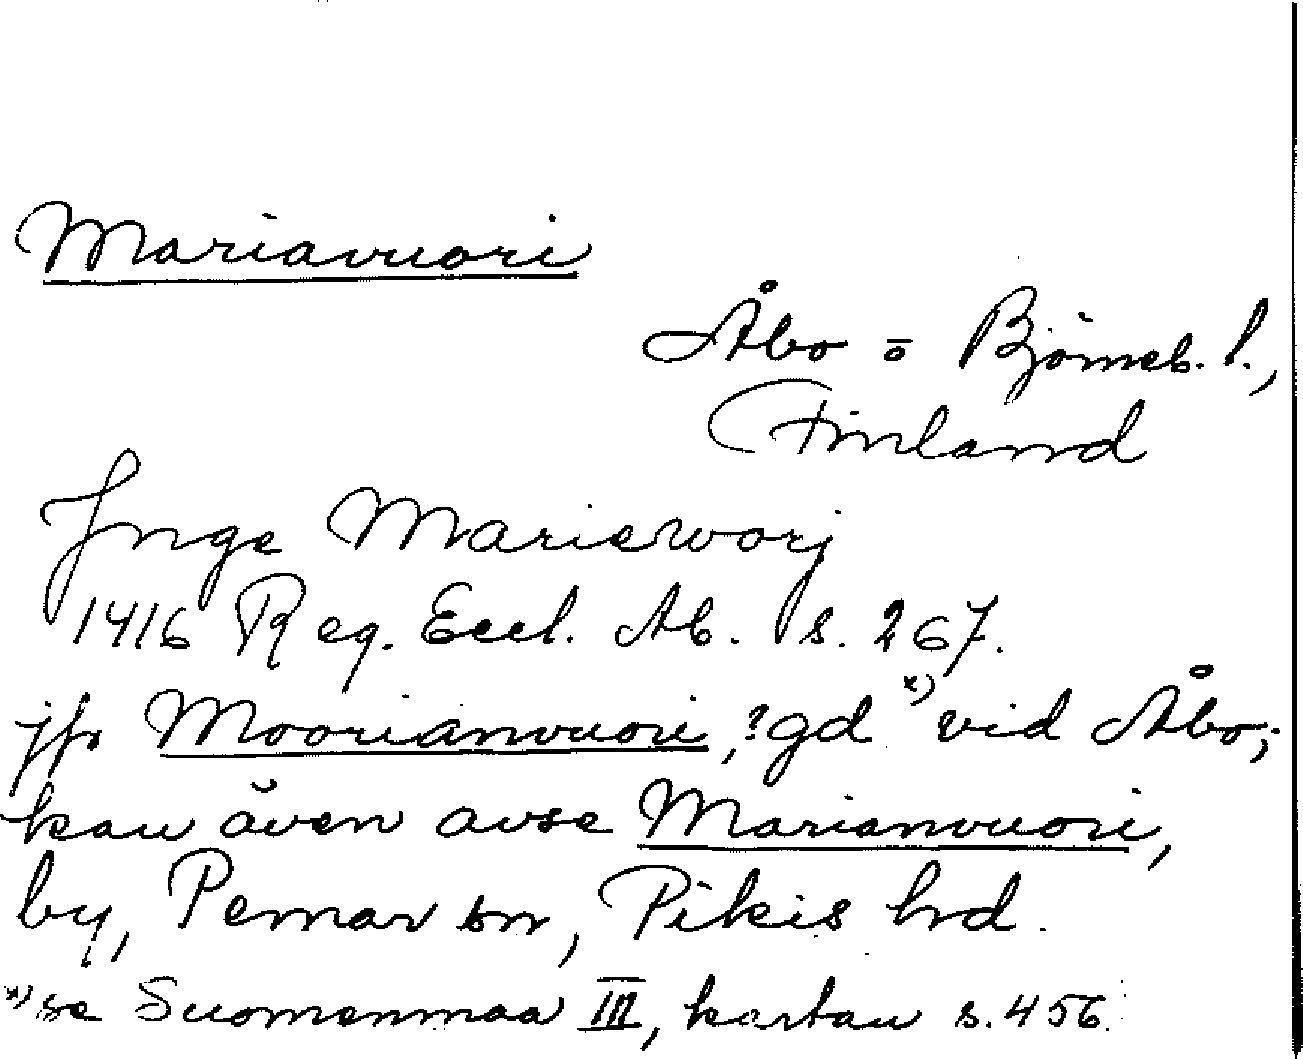 Mariavuori
Åbo o Björneb. l.,
Finland
Jnge Marieworj
1416 Reg. Eccl. Ab. s. 267.
jfr Moorianvuori, ?gd x) vid Åbo;
kan även avse Marianvuori,
by, Pemar sn, Pikis hd.
x) se Suomenmaa III, kartan s. 456.